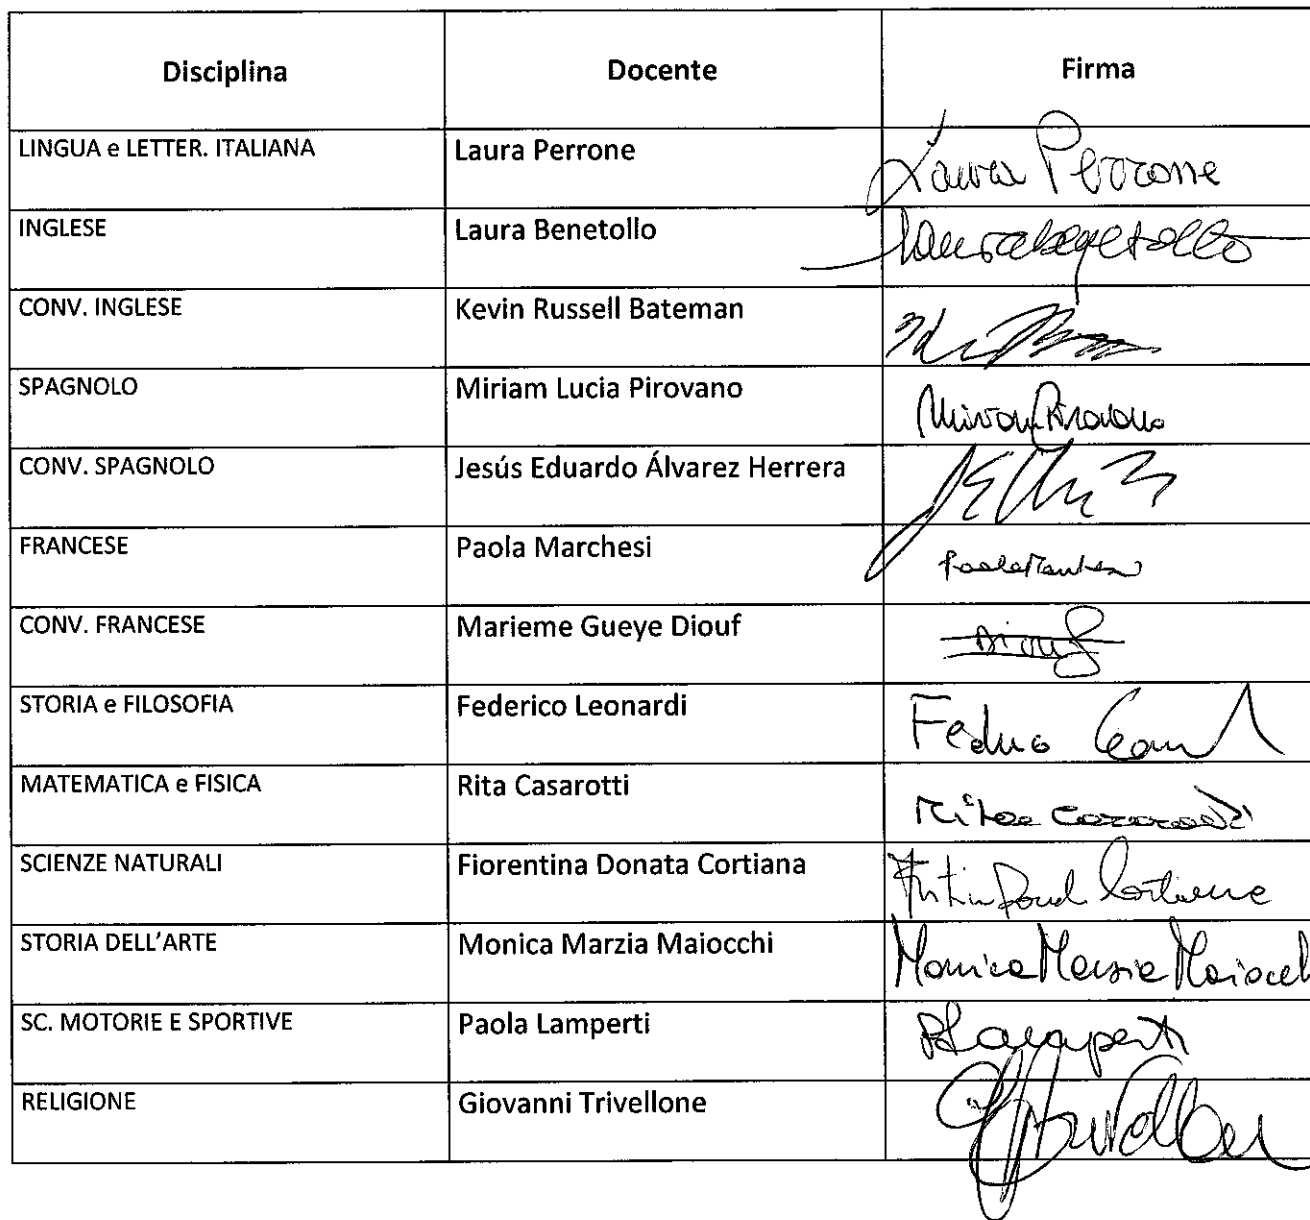 Disciplina Docente Firma
LINGUA e LETTER. ITALIANA Laura Perrone Laura Perrone
INGLESE Laura Benetollo Laura Benetollo
CONV. INGLESE Kevin Russell Bateman
SPAGNOLO Miriam Lucia Pirovano Miriam Pirovano
CONV. SPAGNOLO Jesús Eduardo Álvarez Herrera
FRANCESE Paola Marchesi Paola Marchesi
CONV. FRANCESE Marieme Gueye Diouf Diouf
STORIA e FILOSOFIA Federico Leonardi
MATEMATICA e FISICA Rita Casarotti Rita Casarotti
SCIENZE NATURALI Fiorentina Donata Cortiana Cortiana
STORIA DELL'ARTE Monica Marzia Maiocchi Monica Marzia Maiocch
SC. MOTORIE E SPORTIVE Paola Lamperti PLamperti
RELIGIONE Giovanni Trivellone